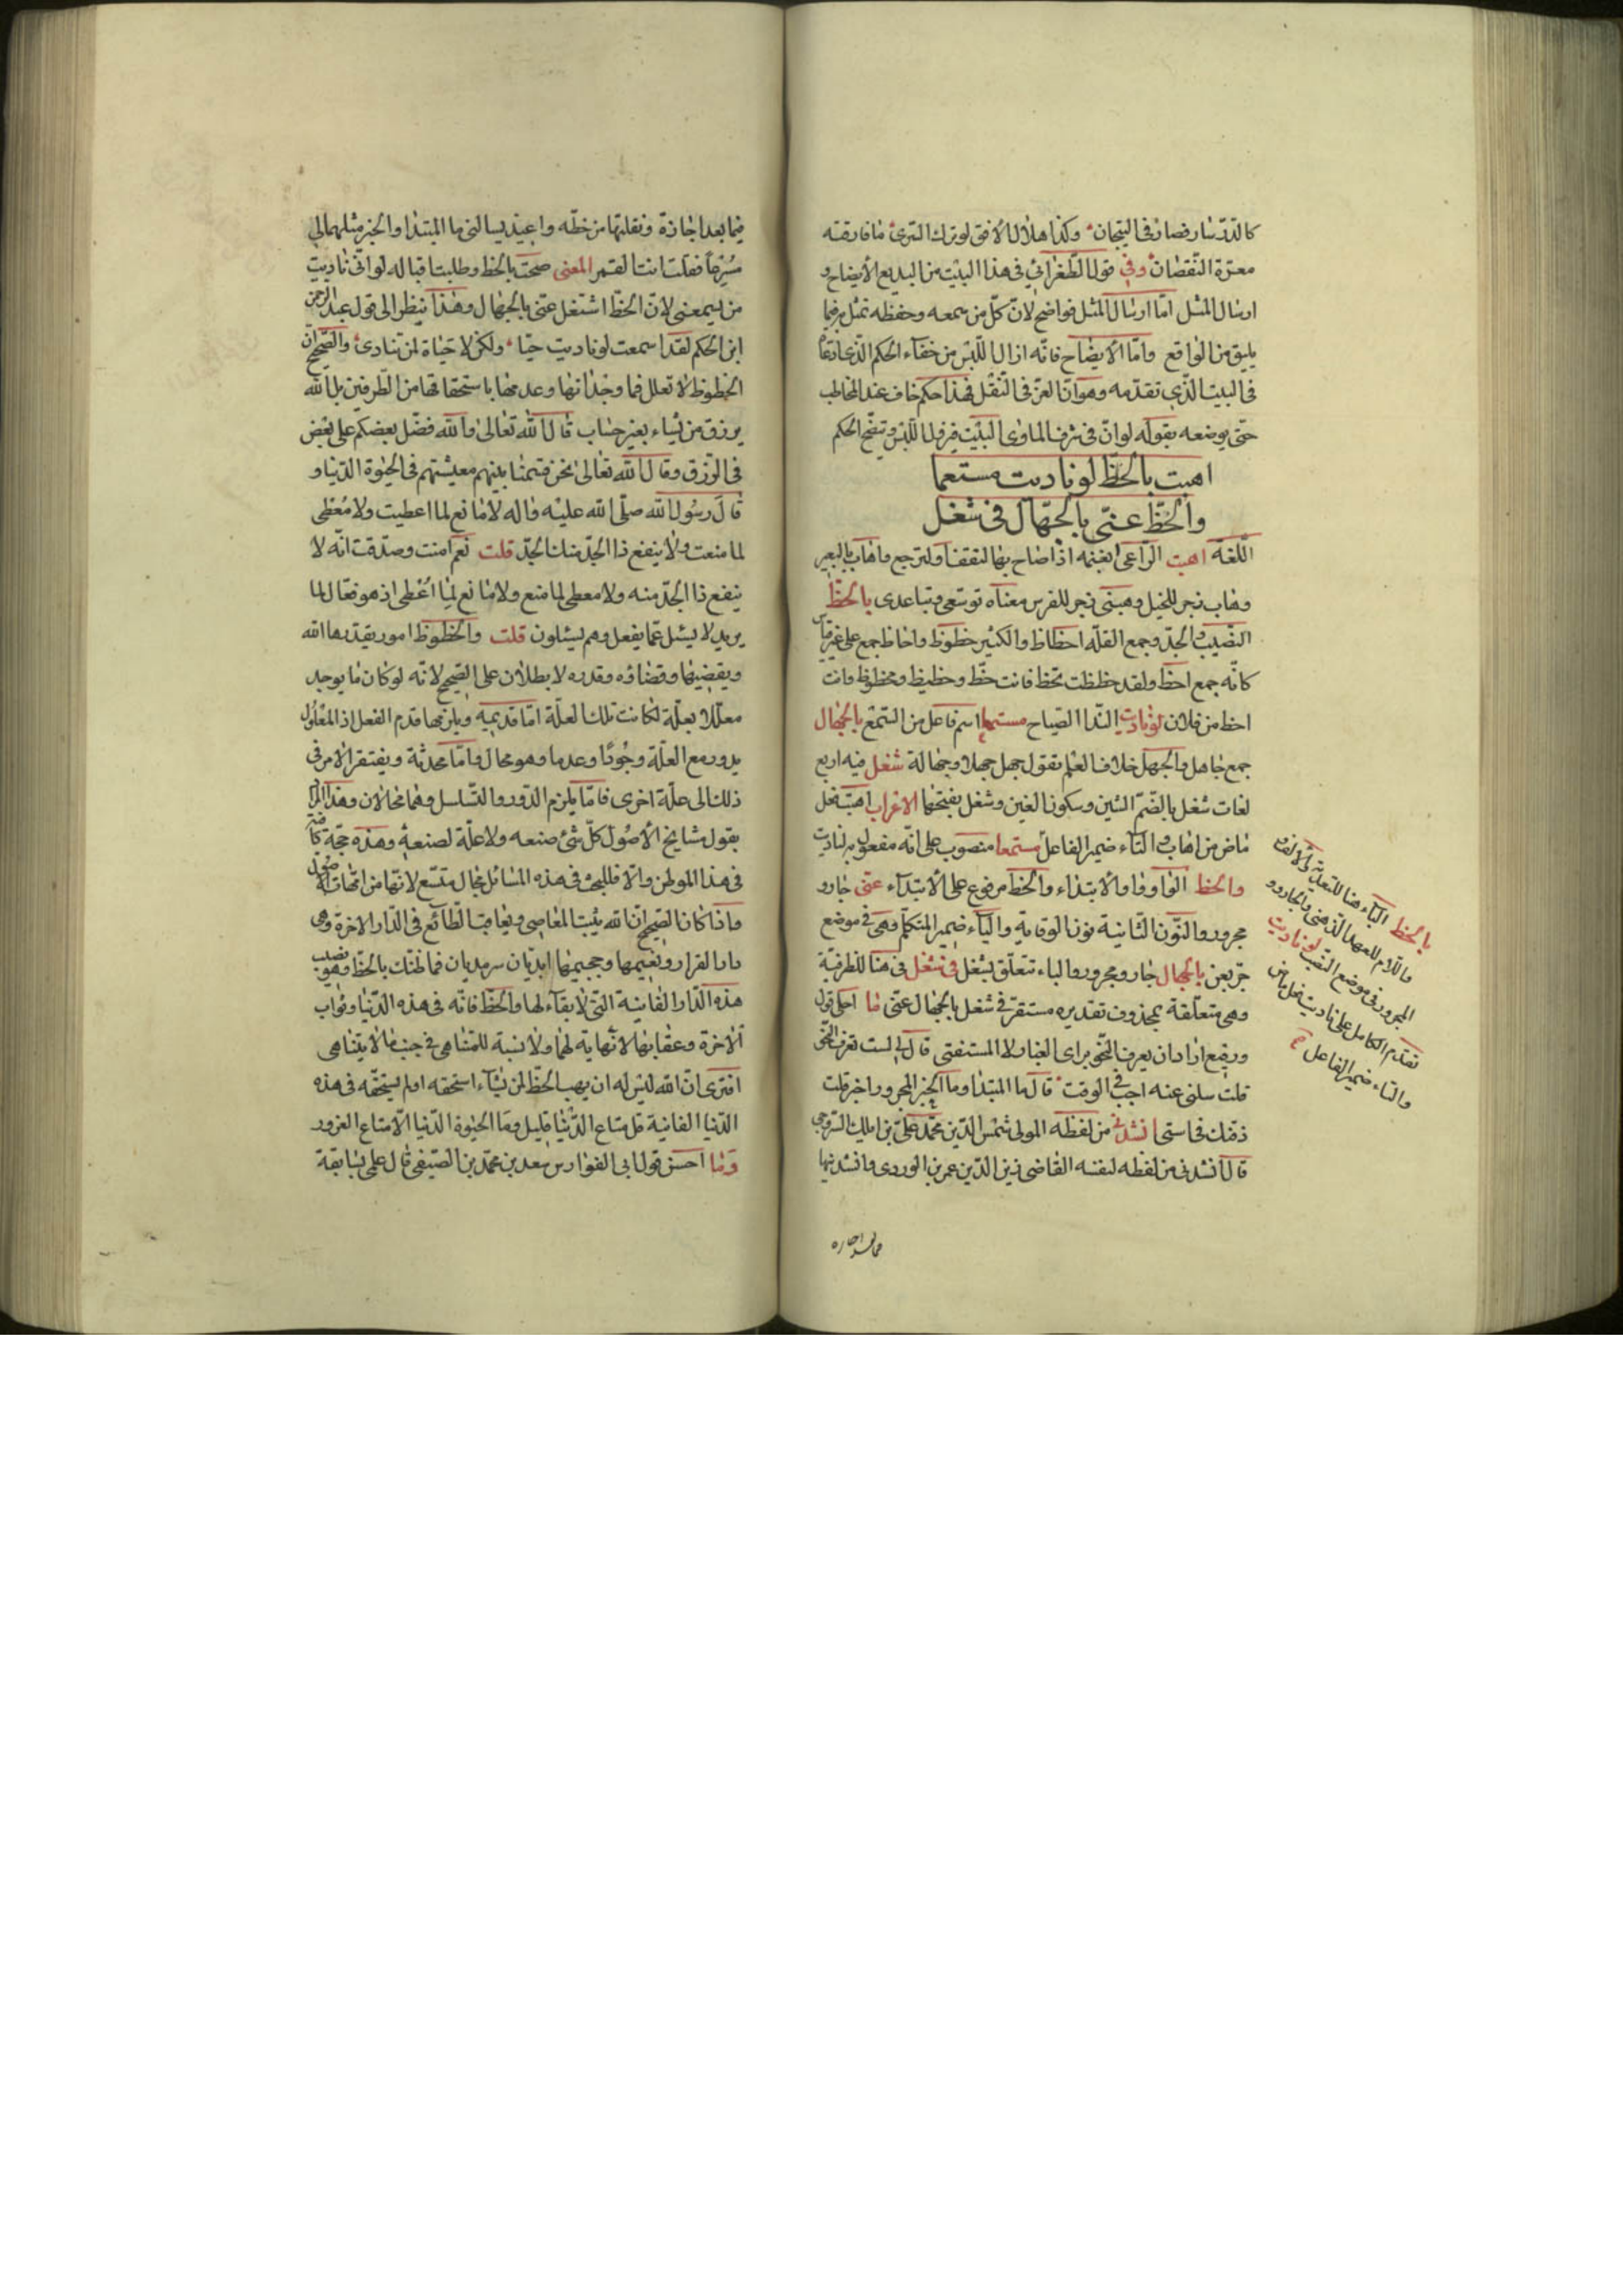 كالدّرّ سار فصار فى التيجان وكذا هلال الافق لو ترك السّرى ما فارقته
معرّة النّقصان وفى قول الطّغرائى فى هذا البيت من البديع الايضاح و
ارسال المثل امّا ارسال المثل فواضح لانّ كلّ من سمعه وحفظه تمثّل به فيما
يليق من الواقع وامّا الايضاح فانّه ازال اللّبس من خفاء الحكم الّذى ادّعاه
فى البيت الّذى تقدّمه وهو انّ العزّ فى النّقل فهذا حكم خاف عند المخاطب
حتّى يوضحه بقوله لو انّ فى شرف الماوى البيت فيزول اللّبس ويتضح الحكم
اهبت بالحظّ لو ناديت مستمعا
والحظّ عنّى بالجهّال فى شغل
اللّغة اهبت الرّاعى بغنمه اذا صاح بها لتقف او لترجع واهاب بالبعير
وهاب زجر للخيل وهبى زجر للفرس معناه توسّعى وتباعدى بالحظّ
النّصيب والجدّ وجمع القلّة احظاظ والكثير حظوظ واحاظ جمع على غير قياس
كانّه جمع احظ ولقد حظظت تحظ فانت حظّ وحظيظ ومحظوظ وانت
احظ من فلان لو ناديت النّدا الصّياح مستمعا اسم فاعل من السّمع بالجهّال
جمع جاهل والجهل خلاف العلم تقول جهل جهلا وجهالة شغل فيه اربع
لغات شغل بالضّم الشين وسكون الغين وشغل بفتحهما الاعراب اهبت فعل
ماض من اهاب والتاء ضمير الفاعل مستمعا منصوب على انّه مفعول به لناديت
والحظ الواو واو الابتداء والحظ مرفوع على الابتداء عنّى جار و
مجرور والنّون الثّانية نون الوقاية والياء ضمير المتكلّم وهى فى موضع
جرّ بعن بالجهال جار ومجرور والباء تتعلّق بشغل فى شغل فى هنا للظرفيّة
وهى متعلّقة بمحذوف تقديره مستقرّ فى شغل بالجهال عنّى ما احلى قول
ورقيع اراد ان يعرف النّحو براى العيار لا المستفتى قال لى لست تعرف النّحو
قلت سلنى عنه اجب فى الوقت قال ما المبتدا وما الخبر المجرور اخبر قلت
ذقنك فى استى انشدنى من لفظه المولى شمس الدّين محمّد علىّ بن ايبك السّروجى
قال انشدنى من لفظه لنفسه القاضى زين الدّين عمر بن الوردى وانشدنيها
بالحظ الباء هنا للتعدية والالف
واللّام للعهد الذهنى والجار و
المجرور فى موضع النّصب لو ناديت
تقدم الكلام على ناديت فعل ماض
والتاء ضمير الفاعل صح
فيما بعد اجازة
فيما بعد اجازة ونقلتها من خطّه واغيد يسالنى ما المبتدا والخبر مثّلهما لى
مسرعا فقلت انت القمر المعنى صحت بالحظ وطلبت اقباله لو انّى ناديت
من يسمعنى لانّ الحظّ اشتغل عنّى بالجهال وهذا ينظر الى قول عبد الرحمن
ابن الحكم لقد اسمعت لو ناديت حيّا ولكن لا حياة لمن تنادى والصّحيح انّ
الحظوظ لا تعلل فما وجدانها وعدمها باستحقاقها من الطّرفين بل اللّه
يرزق من يشاء بغير حساب قال اللّه تعالى واللّه فضّل بعضكم على بعض
فى الرّزق وقال اللّه تعالى نحن قسمنا بينهم معيشتهم فى الحيوة الدّنيا و
قال رسول اللّه صلّى اللّه عليه واله لا مانع لما اعطيت ولا معطى
لما منعت ولا ينفع ذا الجدّ منك الجدّ قلت نعم امنت وصدّقت انّه لا
ينفع ذا الجدّ منه ولا معطى لما منع ولا مانع لما اعطى اذ هو فعّال لما
يريد لا يسئل عمّا يفعل وهم يسئلون قلت والحظوظ امور يقدّرها اللّه
ويقضيها وقضاؤه وقدره لا يعللان على الصّحيح لانّه لو كان ما يوجد
معلّلا بعلّة لكانت تلك العلّة امّا قديمة ويلزمها قدم الفعل اذ المعلول
يدور مع العلّة وجودا وعدما وهو محال وامّا محدثة ويفتقر الامر فى
ذلك الى علّة اخرى فامّا يلزم الدّور والتّسلسل وهما محالان وهذا المراد
بقول مشايخ الاصول كلّ شئ صنعه ولا علّة لصنعه وهذه حجّة كافية
فى هذا الموطن والّا فللبحث فى هذه المسائل مجال متّسع لانّها من امّهات الاصول
واذا كان الصّحيح انّ اللّه يثيب العاصى ويعاقب الطّائع فى الدّار الاخرة وهى
دار القرار ونعيمها وجحيمها ابديّان سرمديان فما ظنّك بالحظّ وهو نصيب
هذه الدّار الفانية الّتى لا بقاء لها والحظّ فانّه فى هذه الدّنيا وثواب
الاخرة وعقابها لا نهاية لهما ولا نسبة للمتناهى فى جنب ما لا يتناهى
افترى انّ اللّه ليس له ان يهب الحظّ لمن يشاء استحقه او لم يستحقّه فى هذه
الدّنيا الفانية قل متاع الدّنيا قليل وما الحيوة الدّنيا الّا متاع الغرور
وما احسن قول ابى الفوارس سعد بن محمّد بن الصّيفى قال على سابقة